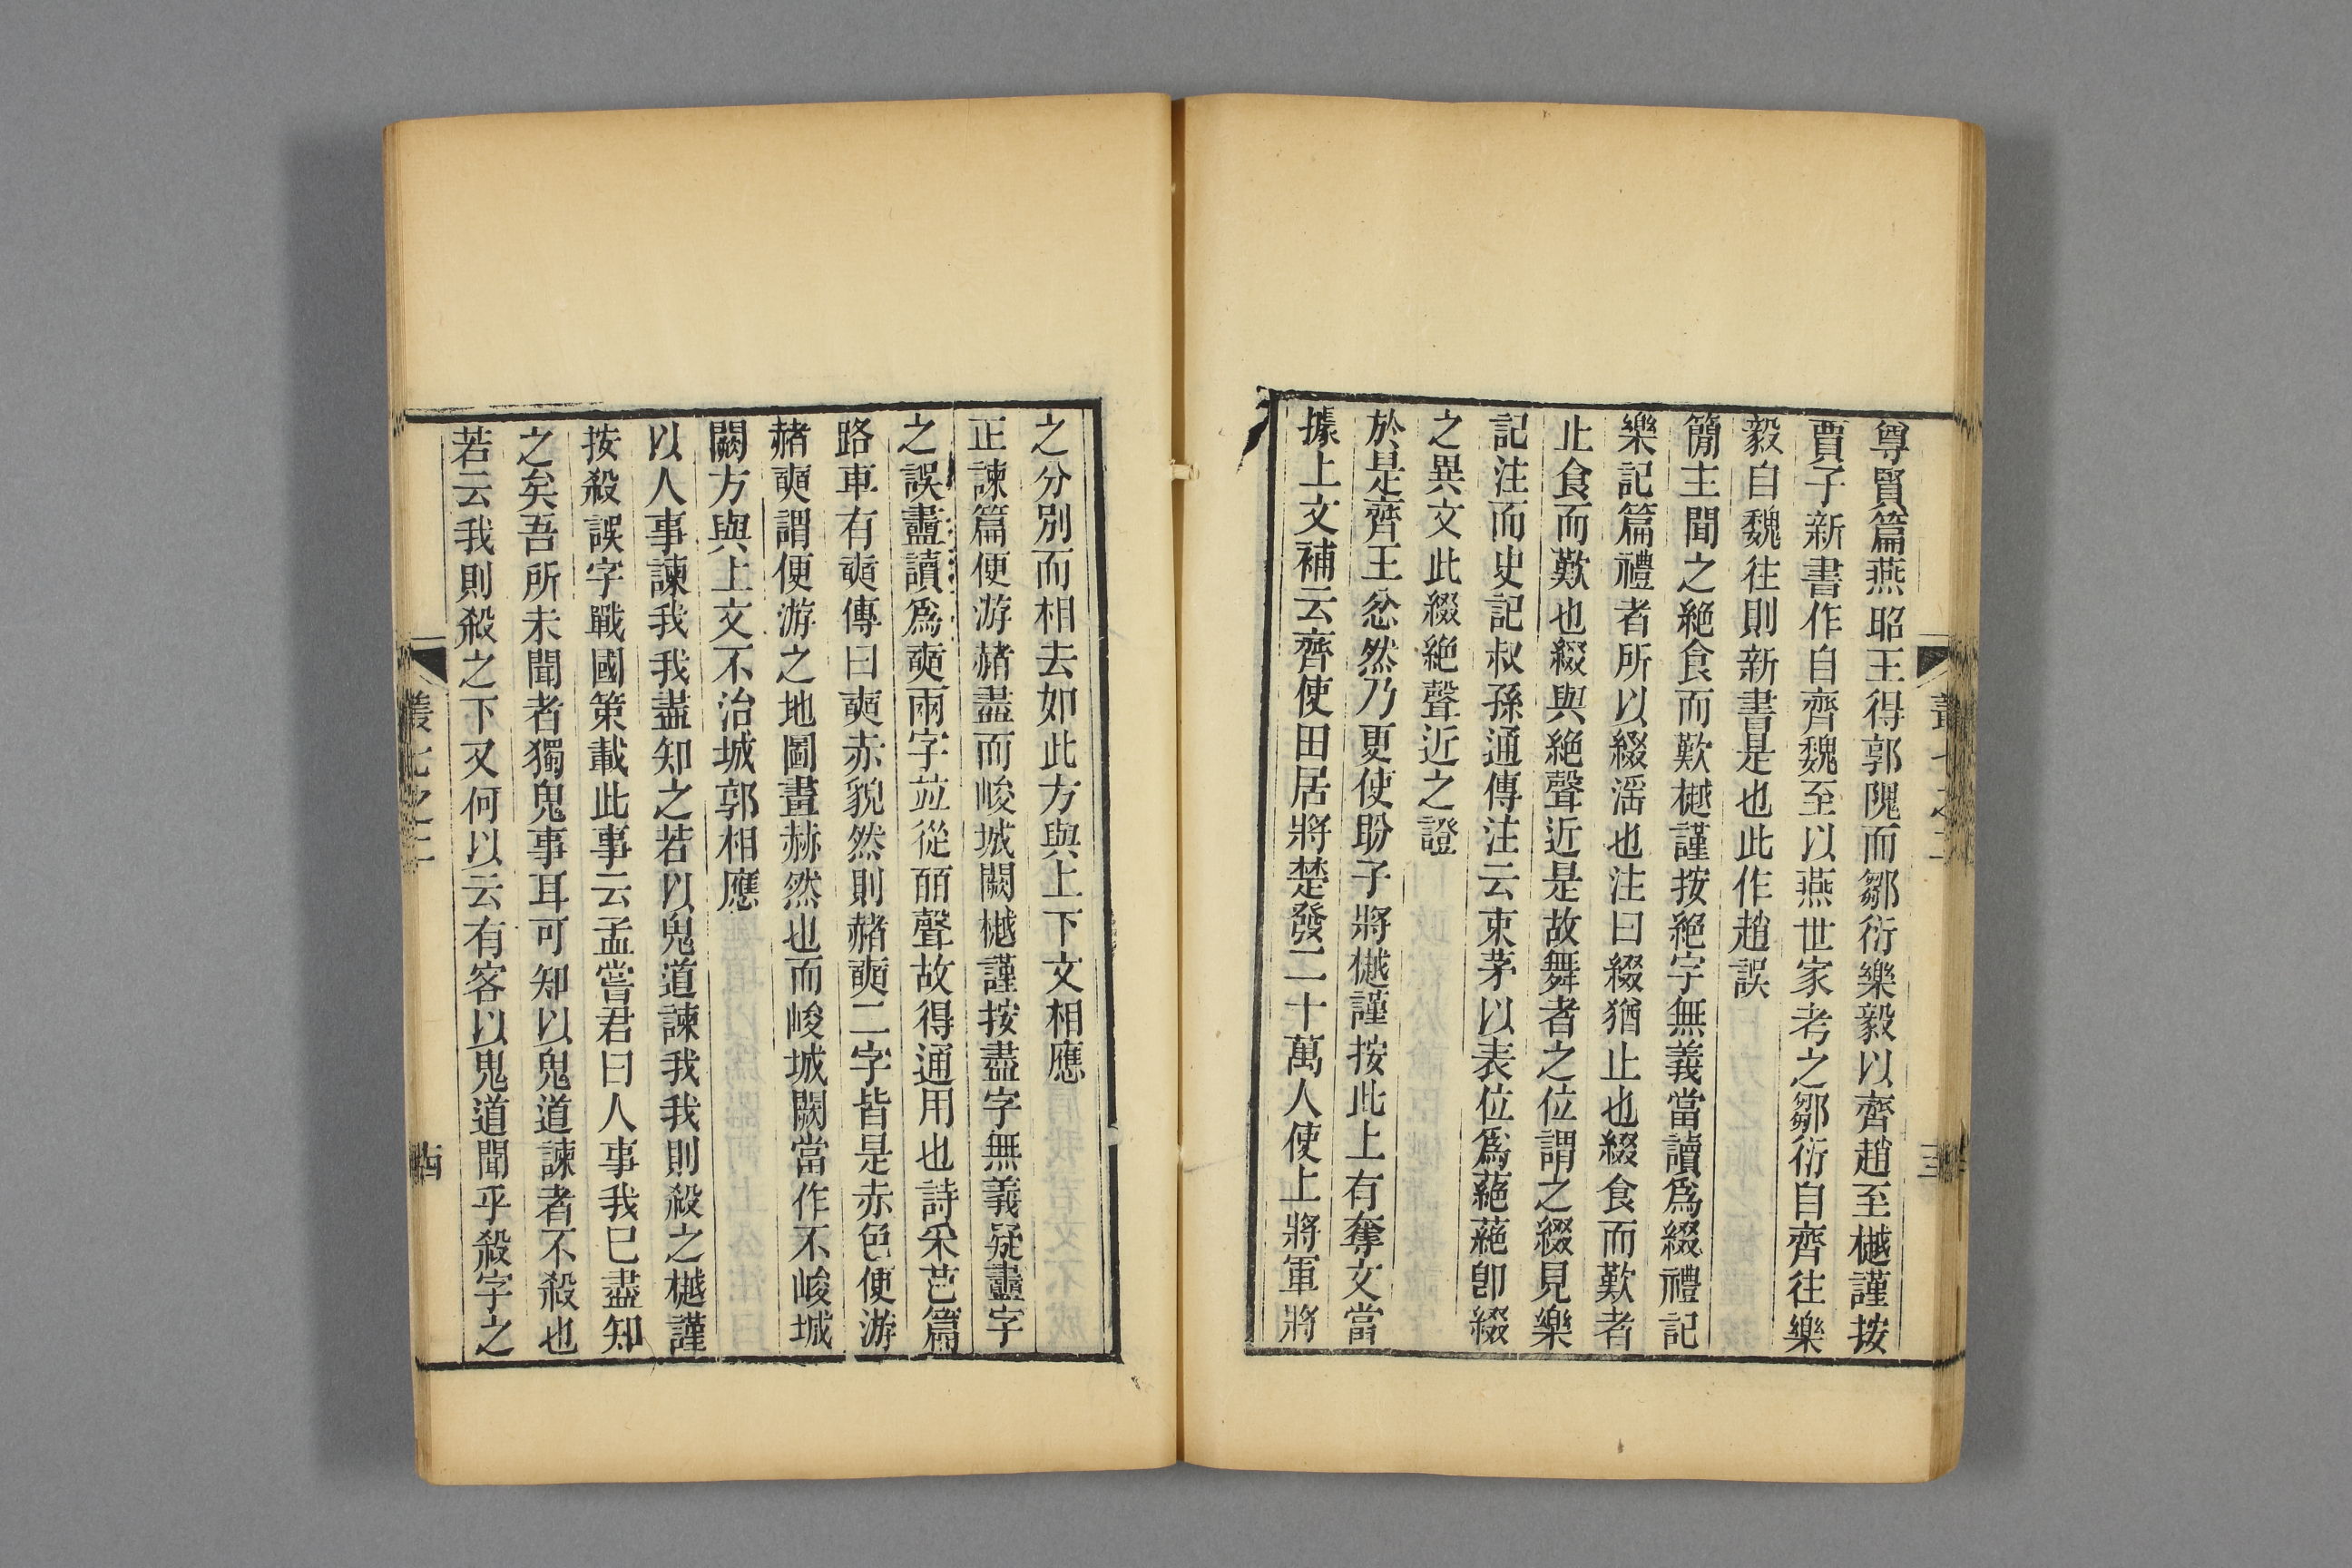 尊賢篇燕昭王得郭隗而鄒衍樂毅以齊趙至樾謹按
賈子新書作自齊魏至以燕世家考之鄒衍自齊往樂
毅自魏往則新書是也此作趙誤
簡主聞之絕食而歎樾謹按絕字無義當讀爲綴禮記
樂記篇禮者所以綴淫也注曰綴猶止也綴食而歎者
止食而歎也綴與絕聲近是故舞者之位謂之綴見樂
記注而史記叔孫通傳注云束茅以表位爲蕝蕝卽綴
之異文此綴絕聲近之證
於是齊王忿然乃更使盼子將樾謹按此上有奪文當
據上文補云齊使田居將楚發二十萬人使上將軍將
之分別而相去如此方與上下文相應
正諫篇便游赭盡而峻城闕樾謹按盡字無義疑衋字
之誤衋讀爲奭兩字竝從皕聲故得通用也詩采芑篇
路車有奭傳曰奭赤貌然則赭奭二字皆是赤色便游
赭奭謂便游之地圖畫赫然也而峻城闕當作不峻城
闕方與上文不治城郭相應
以人事諫我我盡知之若以鬼道諫我我則殺之樾謹
按殺誤字戰國策載此事云孟嘗君曰人事我已盡知
之矣吾所未聞者獨鬼事耳可知以鬼道諫者不殺也
若云我則殺之下又何以云有客以鬼道聞乎殺字之
叢七之二
四